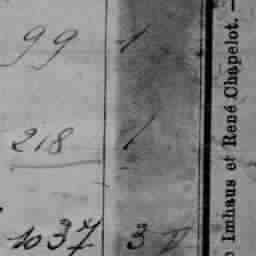 99 1
218 1
1037 3
Imhaus et René Chapelot. —